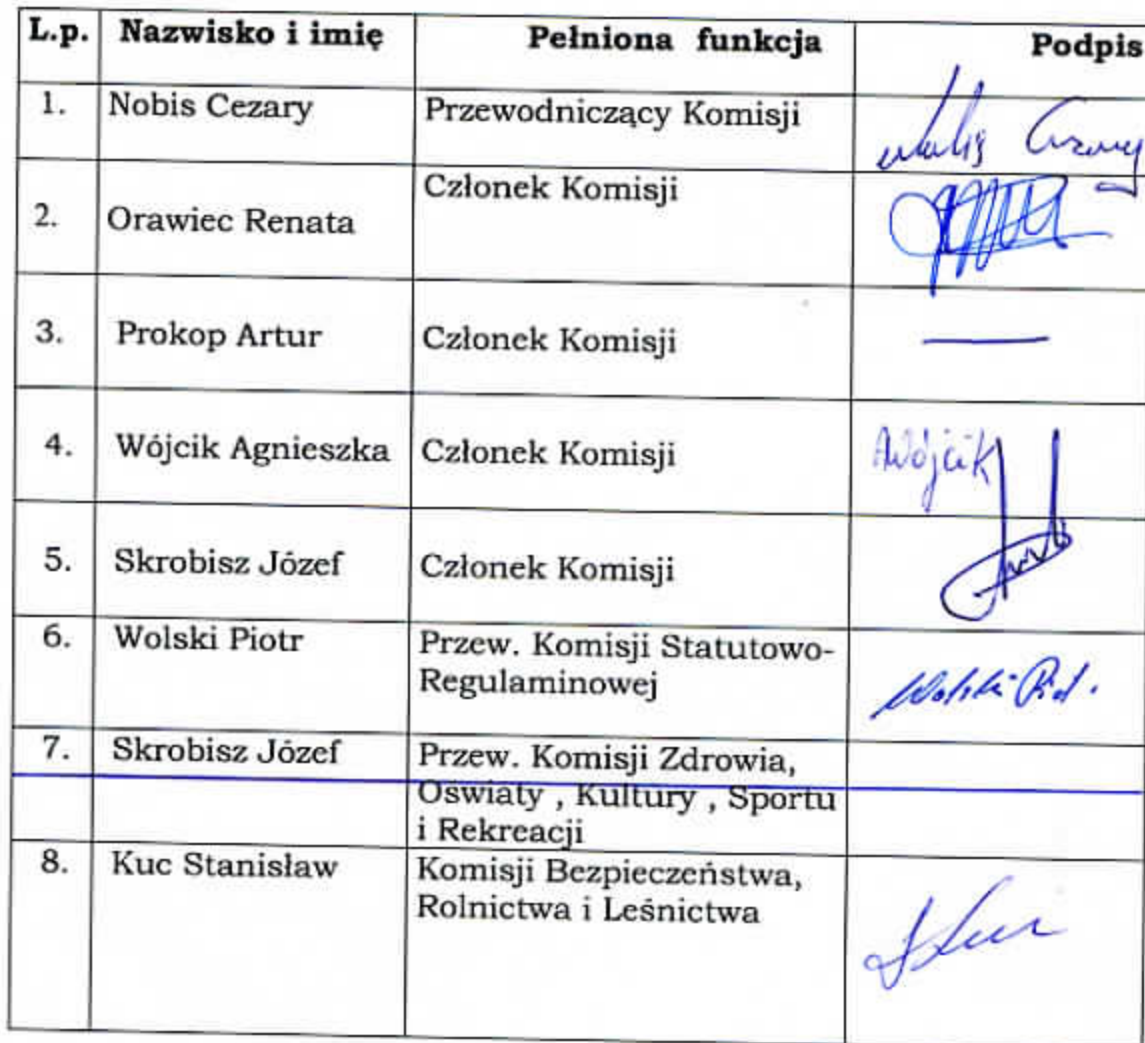 L.p. Nazwisko i imię Pełniona funkcja Podpis
1. Nobis Cezary Przewodniczący Komisji
2. Orawiec Renata Członek Komisji
3. Prokop Artur Członek Komisji —
4. Wójcik Agnieszka Członek Komisji AWójcik
5. Skrobisz Józef Członek Komisji
6. Wolski Piotr Przew. Komisji Statutowo-
Regulaminowej Wolski
7. Skrobisz Józef Przew. Komisji Zdrowia,
Oświaty , Kultury , Sportu
i Rekreacji
8. Kuc Stanisław Komisji Bezpieczeństwa,
Rolnictwa i Leśnictwa